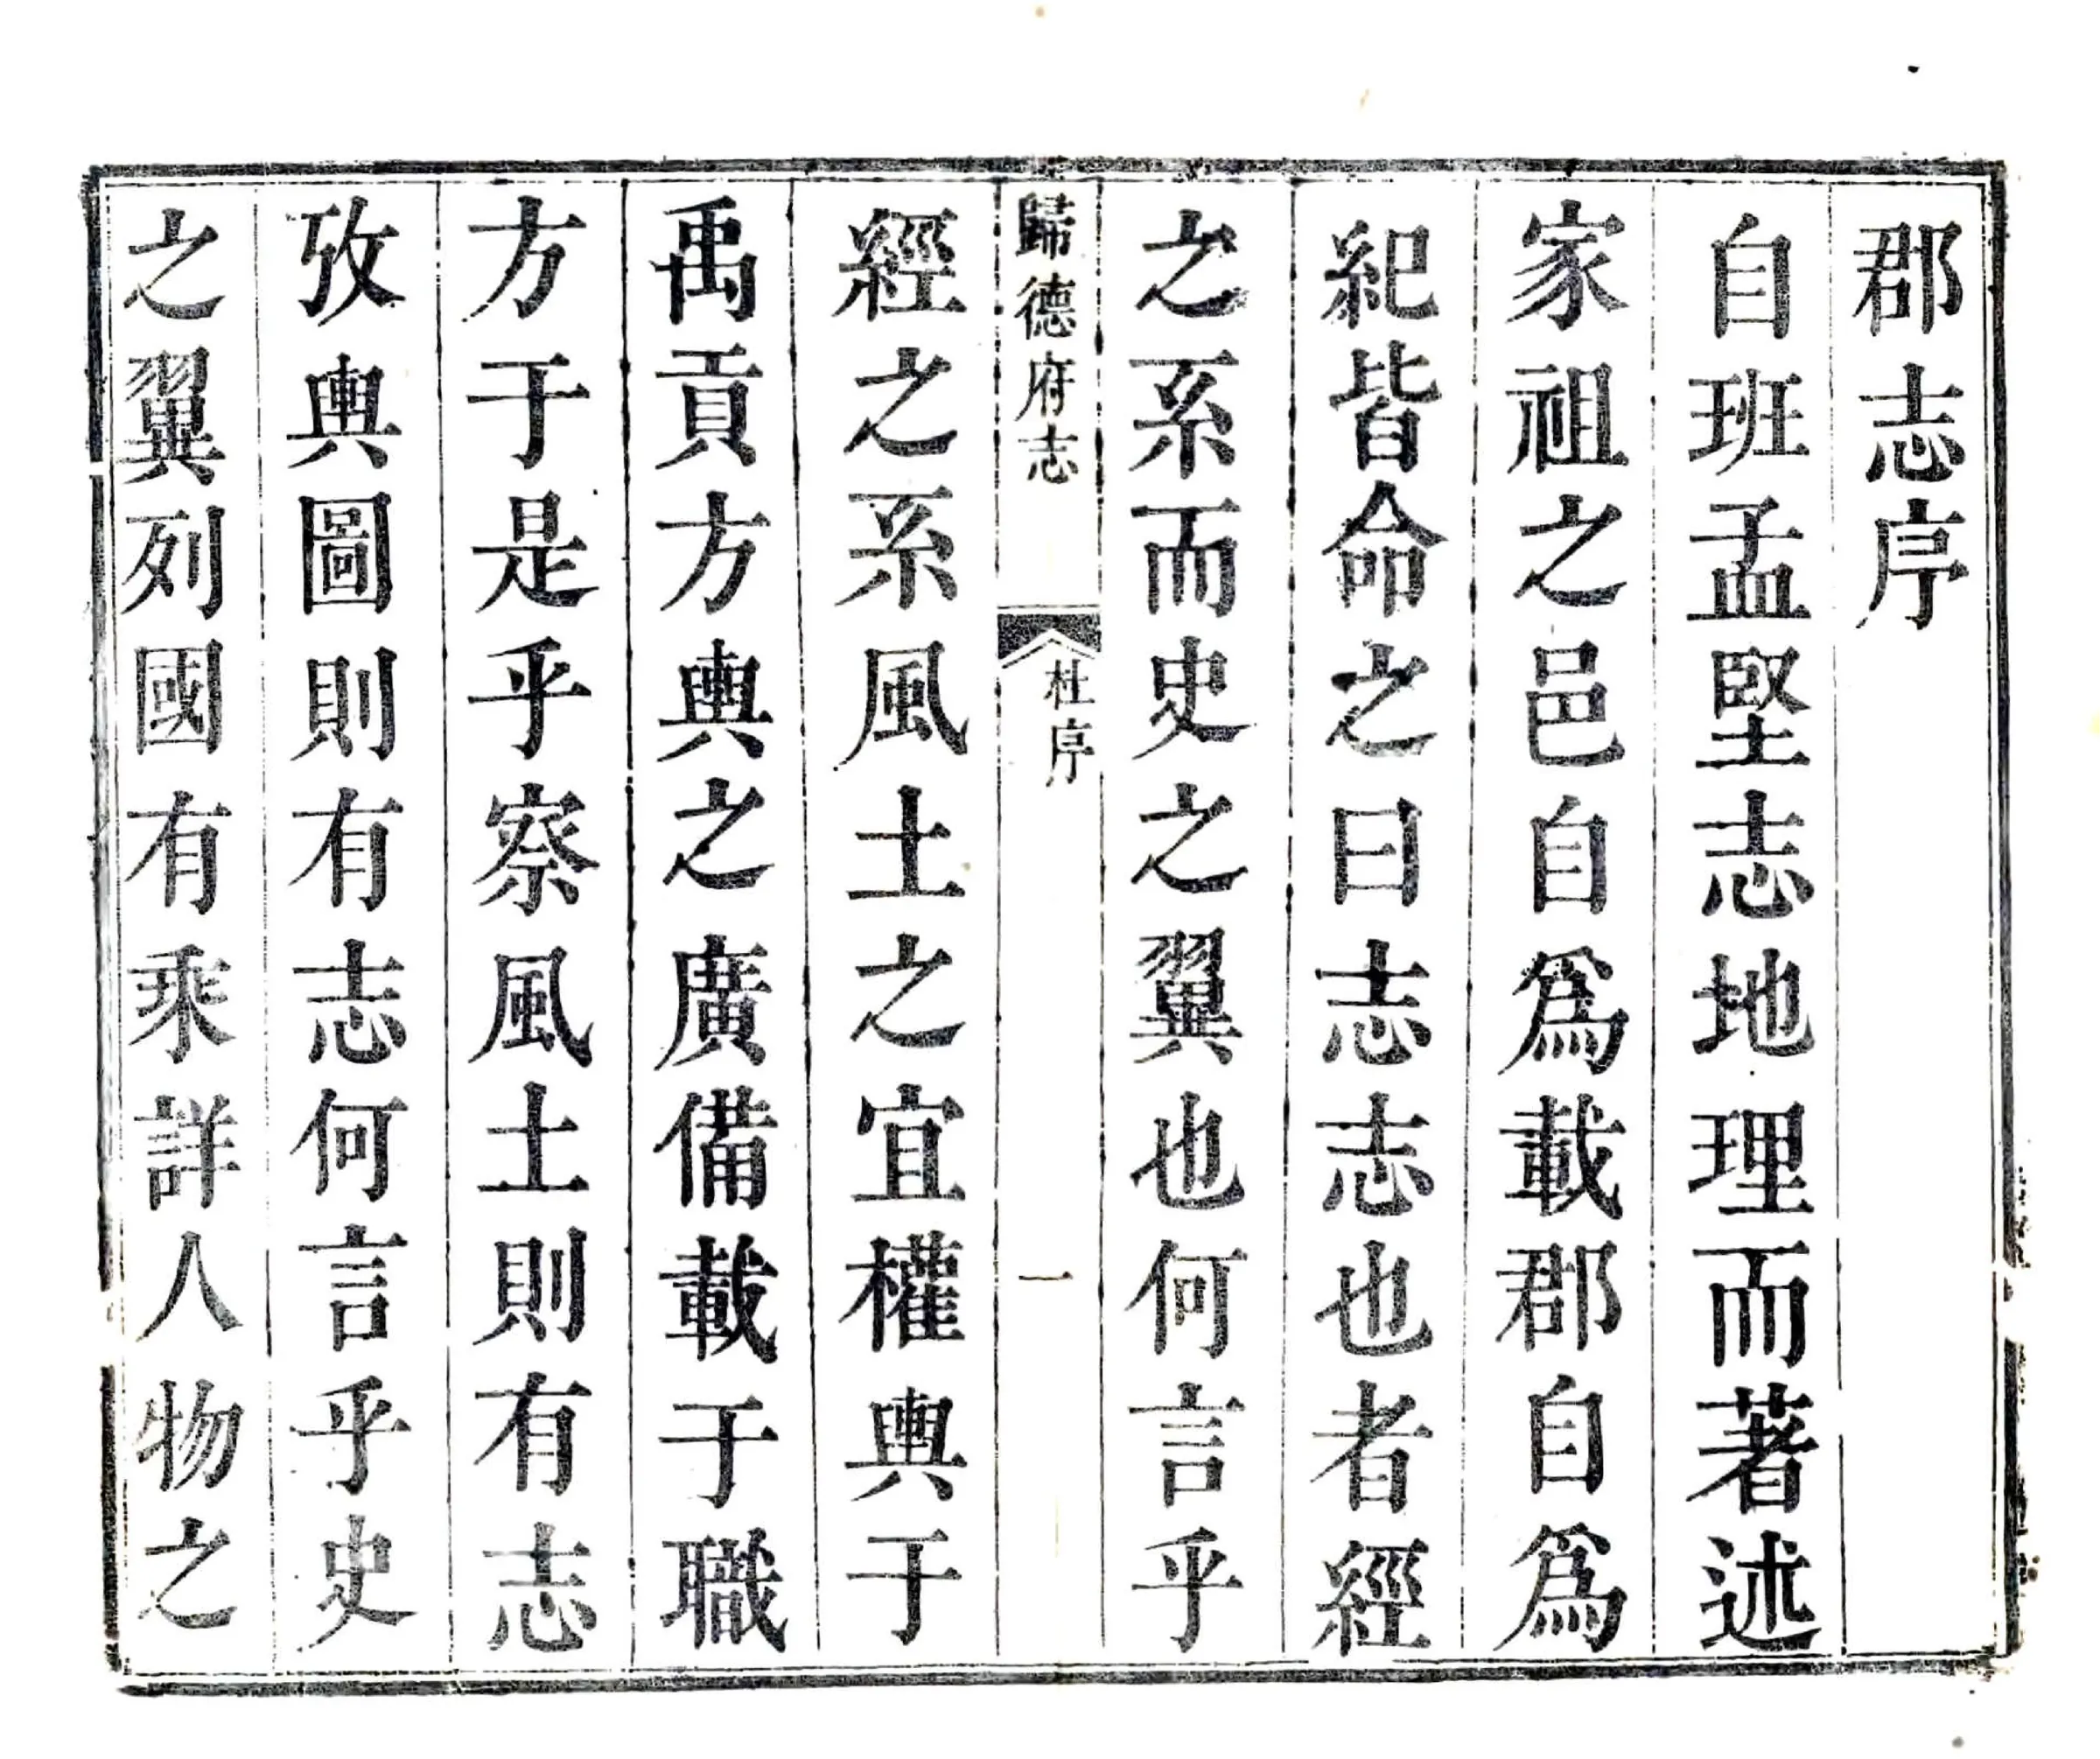 郡志序
自班孟堅志地理而著述
家祖之邑自爲載郡自爲
紀皆命之曰志志也者經
之系而史之翼也何言乎
歸德府志
杜序
一
經之系風土之宜權輿于
禹貢方輿之廣備載于職
方于是乎察風土則有志
攷輿圖則有志何言乎史
之翼列國有乘詳人物之